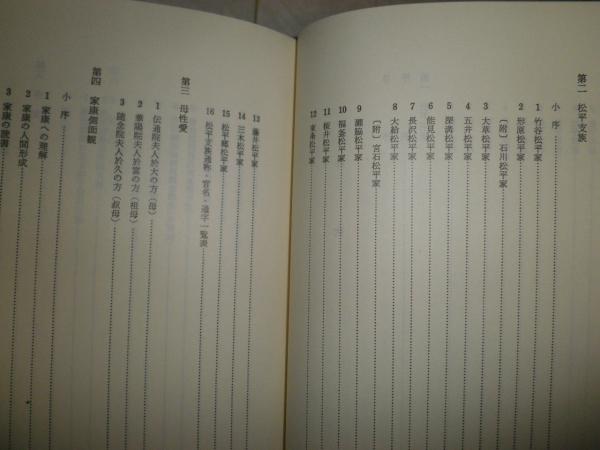 第二 松平支族
小序
1 竹谷松平家
2 形原松平家
〔附〕石川松平家
3 大草松平家
4 五井松平家
5 深溝松平家
6 能見松平家
7 長沢松平家
8 大給松平家
〔附〕宮石松平家
9 滝脇松平家
10 福釜松平家
11 桜井松平家
12 東条松平家
13 藤井松平家
14 三木松平家
15 松平郷松平家
16 松平支族通称・官名・通字一覧表
第三 母性愛
1 伝通院夫人於大の方(母)
2 華陽院夫人於富の方(祖母)
3 随念院夫人於久の方(叔母)
第四 家康側面観
小序
1 家康への理解
2 家康の人間形成
3 家康の読書